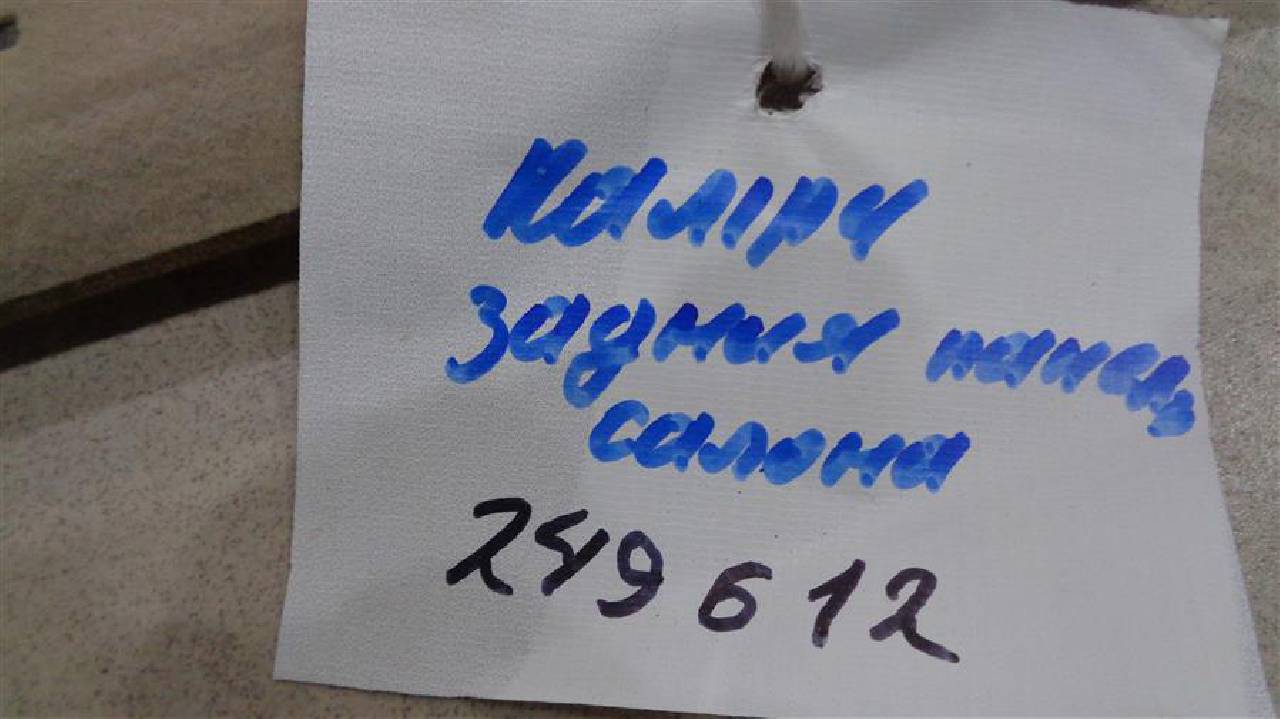 Камри
задния панель
салона
249612